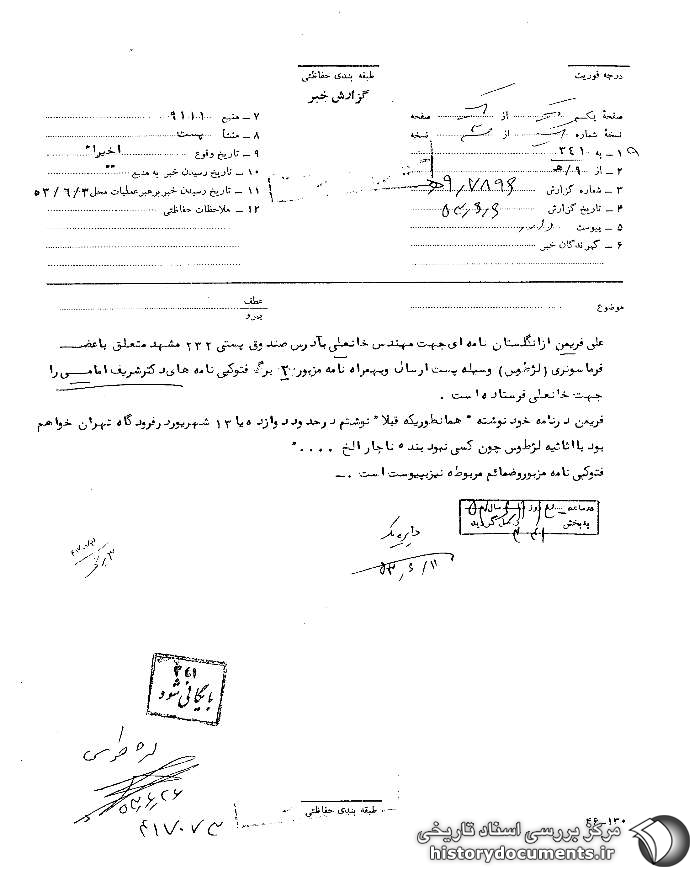 طبقه بندی حفاظتی
درجه فوریت
گزارش خبر
صفحهٔ یکم از یک صفحه
نسخهٔ شماره از نسخه
۱ ـ به ۳۴۱
۲ ـ از ۹/ه
۳ ـ شماره گزارش
۴ ـ تاریخ گزارش
۵ ـ پیوست دارد
۶ ـ گیرندگان خبر
۷ ـ منبع ۹۱۱۱
۸ ـ منشأ پست
۹ ـ تاریخ وقوع اخیرا"
۱۰ ـ تاریخ رسیدن خبر به منبع "
۱۱ ـ تاریخ رسیدن خبر برهبر عملیات محل ۵۳/۶/۳
۱۲ ـ ملاحظات حفاظتی
موضوع
عطف
پیرو
علی فریمن ازانگلستان نامه ای جهت مهندس خانعلی بآدرس صندوق پستی ۲۳۲ مشهد متعلق باعضـ
فرماسونری (لژطوس) وسیله پست ارسال وبهمراه نامه مزبور ۲ برگ فتوکپی نامه های دکترشریف امامـی را
جهت خانعلی فرستاده است .
فریمن درنامه خود نوشته " همانطوریکه قبلا" نوشتم درحدود دوازده یا ۱۳ شهریور درفرودگاه تهران خواهم
بود با اثاثیه لژطوس چون کسی نبود بنده ناچار الخ ۰۰۰۰ "
فتوکپی نامه مزبوروضمائم مربوطه نیزبپیوست است .ـ
بایگانی شود
۳۴۱
۵۳/۶/۱۱
۵۳/۶/۲۶
۴۱۷۰۷۳
طبقه بندی حفاظتی
۴۶-۱۳۰
مرکز بررسی اسناد تاریخی
historydocuments.ir